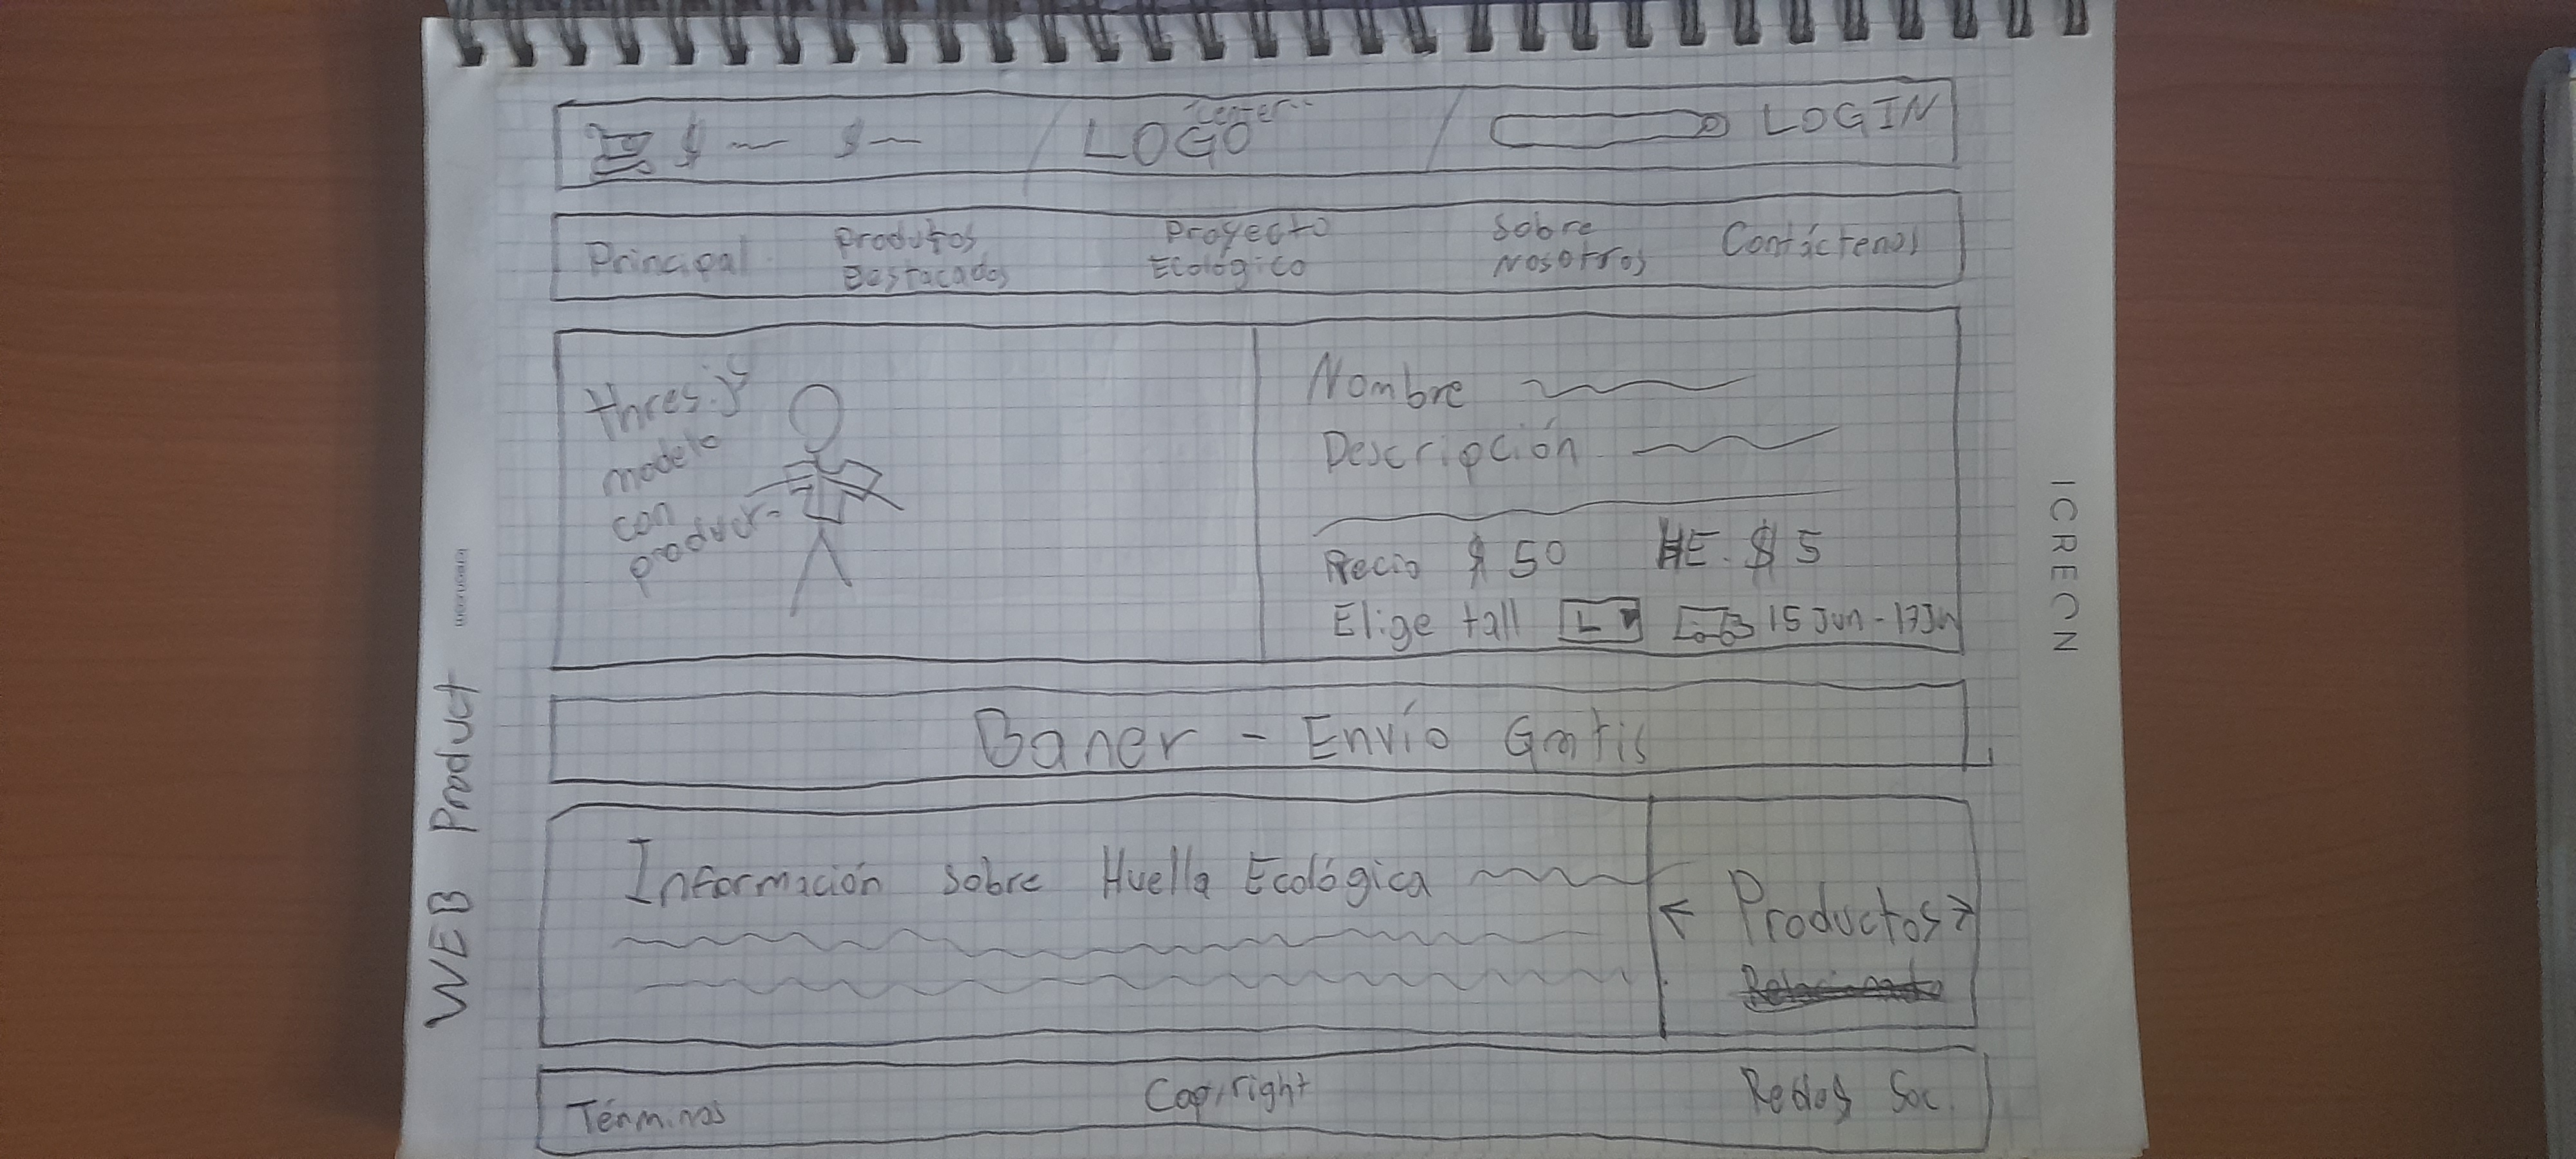 $ $
LOGO
center
LOGIN
Principal
Produtos
Destacados
Proyecto
Ecológico
Sobre
Nosotros
Contáctenos
thres.js
modelo
con
product-
Nombre
Descripción
Precio $ 50 HE. $ 5
Elige tall L 15 Jun - 17 Jun
Baner - Envío Gratis
Información sobre Huella Ecológica
Productos
Términos
Copyright
Redes Soc.
WEB Product
ICRECN